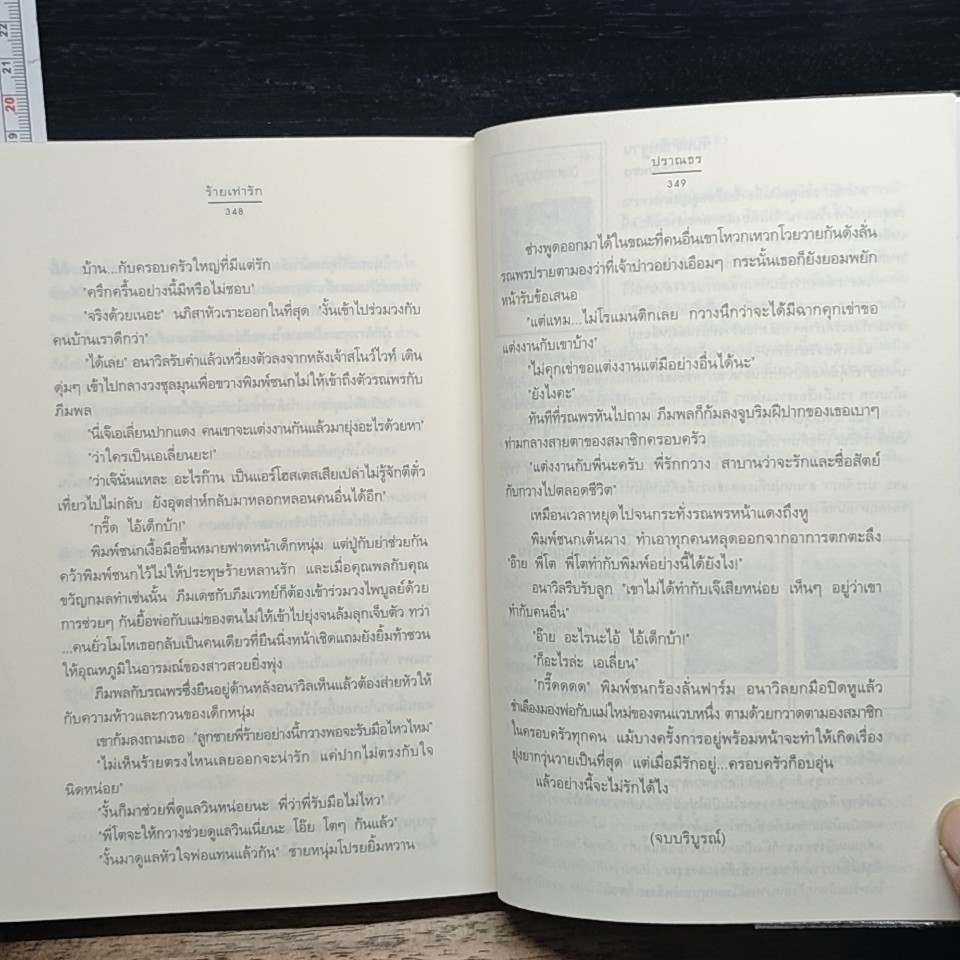 22
21
20
19
ร้ายเท่ารัก
348
บ้าน...กับครอบครัวใหญ่ที่มีแต่รัก
"ครึกครื้นอย่างนี้มีหรือไม่ชอบ"
"จริงด้วยเนอะ" นภิสาหัวเราะออกในที่สุด "งั้นเข้าไปร่วมวงกับ
คนบ้านเราดีกว่า"
"ได้เล่ย" อนาวิลรับคำแล้วเหวี่ยงตัวลงจากหลังเจ้าสโนว์ไวท์ เดิน
ดุ่มๆ เข้าไปกลางวงชุลมุนเพื่อขวางพิมพ์ชนกไม่ให้เข้าถึงตัวรณพรกับ
ภีมพล
"นี่เจ๊เอเลี่ยนปากแดง คนเขาจะแต่งงานกันแล้วมายุ่งอะไรด้วยหา"
"ว่าใครเป็นเอเลี่ยนยะ!"
"ว่าเจ๊นั่นแหละ อะไรก๊าน เป็นแอร์โฮสเตสเสียเปล่าไม่รู้จักตีตั๋ว
เที่ยวไปไม่กลับ ยังอุตส่าห์กลับมาหลอกหลอนคนอื่นได้อีก"
"กรี๊ด ไอ้เด็กบ้า!"
พิมพ์ชนกเงื้อมือขึ้นหมายฟาดหน้าเด็กหนุ่ม แต่ปู่กับย่าช่วยกัน
คว้าพิมพ์ชนกไว้ไม่ให้ประทุษร้ายหลานรัก และเมื่อคุณพลกับคุณ
ขวัญกมลทำเช่นนั้น ภีมเดชกับภีมเวทย์ก็ต้องเข้าร่วมวงไพบูลย์ด้วย
การช่วยๆ กันยื้อพ่อกับแม่ของตนไม่ให้เข้าไปยุ่งจนล้มลุกเจ็บตัว ทว่า
...คนยั่วโมโหเธอกลับเป็นคนเดียวที่ยืนนิ่งหน้าเชิดแถมยังยิ้มท้าชวน
ให้อุณหภูมิในอารมณ์ของสาวสวยยิ่งพุ่ง
ภีมพลกับรณพรซึ่งยืนอยู่ด้านหลังอนาวิลเห็นแล้วต้องส่ายหัวให้
กับความห้าวและกวนของเด็กหนุ่ม
เขาก้มลงถามเธอ "ลูกชายพี่ร้ายอย่างนี้กวางพอจะรับมือไหวไหม"
"ไม่เห็นร้ายตรงไหนเลยออกจะน่ารัก แค่ปากไม่ตรงกับใจ
นิดหน่อย"
"งั้นก็มาช่วยพี่ดูแลวินหน่อยนะ พี่ว่าพี่รับมือไม่ไหว"
"พี่โตจะให้กวางช่วยดูแลวินเนี่ยนะ โอ๊ย โตๆ กันแล้ว"
"งั้นมาดูแลหัวใจพ่อแทนแล้วกัน" ชายหนุ่มโปรยยิ้มหวาน
ปราณธร
349
ช่างพูดออกมาได้ในขณะที่คนอื่นเขาโหวกเหวกโวยวายกันดังลั่น
รณพรปรายตามองว่าที่เจ้าบ่าวอย่างเอือมๆ กระนั้นเธอก็ยังยอมพยัก
หน้ารับข้อเสนอ
"แต่แหม...ไม่โรแมนติกเลย กวางนึกว่าจะได้มีฉากคุกเข่าขอ
แต่งงานกับเขาบ้าง"
"ไม่คุกเข่าขอแต่งงานแต่มีอย่างอื่นได้นะ"
"ยังไงคะ"
ทันทีที่รณพรหันไปถาม ภีมพลก็ก้มลงจูบริมฝีปากของเธอเบาๆ
ท่ามกลางสายตาของสมาชิกครอบครัว
"แต่งงานกับพี่นะครับ พี่รักกวาง สาบานว่าจะรักและซื่อสัตย์
กับกวางไปตลอดชีวิต"
เหมือนเวลาหยุดไปจนกระทั่งรณพรหน้าแดงถึงหู
พิมพ์ชนกเต้นผาง ทำเอาทุกคนหลุดออกจากอาการตกตะลึง
"อ๊าย พี่โต พี่โตทำกับพิมพ์อย่างนี้ได้ยังไง!"
อนาวิลรีบรับลูก "เขาไม่ได้ทำกับเจ๊เสียหน่อย เห็นๆ อยู่ว่าเขา
ทำกับคนอื่น"
"อ๊าย อะไรนะไอ้ ไอ้เด็กบ้า!"
"ก็อะไรล่ะ เอเลี่ยน"
"กรี๊ดดดด" พิมพ์ชนกร้องลั่นฟาร์ม อนาวิลยกมือปิดหูแล้ว
ชำเลืองมองพ่อกับแม่ใหม่ของตนแวบหนึ่ง ตามด้วยกวาดตามองสมาชิก
ในครอบครัวทุกคน แม้บางครั้งการอยู่พร้อมหน้าจะทำให้เกิดเรื่อง
ยุ่งยากวุ่นวายเป็นที่สุด แต่เมื่อมีรักอยู่...ครอบครัวก็อบอุ่น
แล้วอย่างนี้จะไม่รักได้ไง
(จบบริบูรณ์)